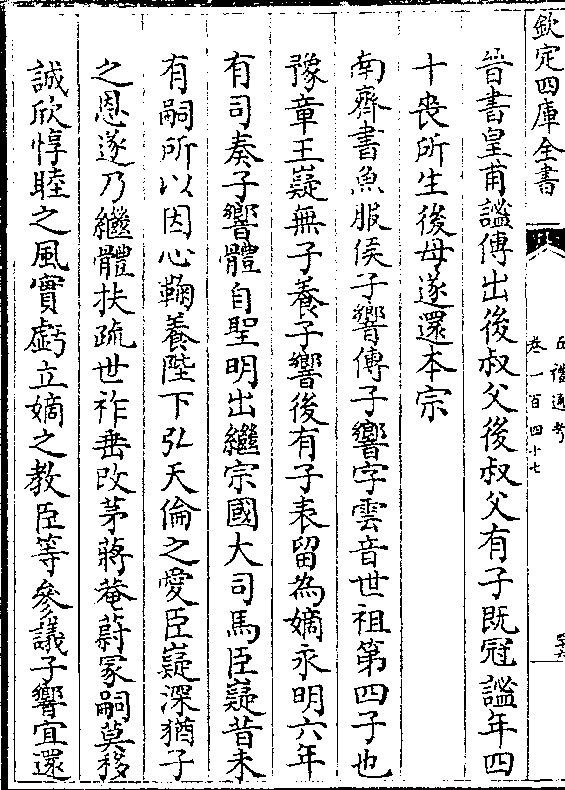 欽定四庫全書
五禮通考
卷一百四十七
晉書皇甫謐傳出後叔父後叔父有子既冠謐年四
十喪所生後母遂還本宗
南齊書魚服侯子響傳子響字雲音世祖第四子也
豫章王嶷無子養子響後有子表留為嫡永明六年
有司奏子響體自聖明出繼宗國大司馬臣嶷昔未
有嗣所以因心鞠養陛下弘天倫之愛臣嶷深猶子
之恩遂乃繼體扶疏世祚垂改茅蔣菴蔚冢嗣莫移
誠欣惇睦之風實虧立嫡之教臣等參議子響宜還